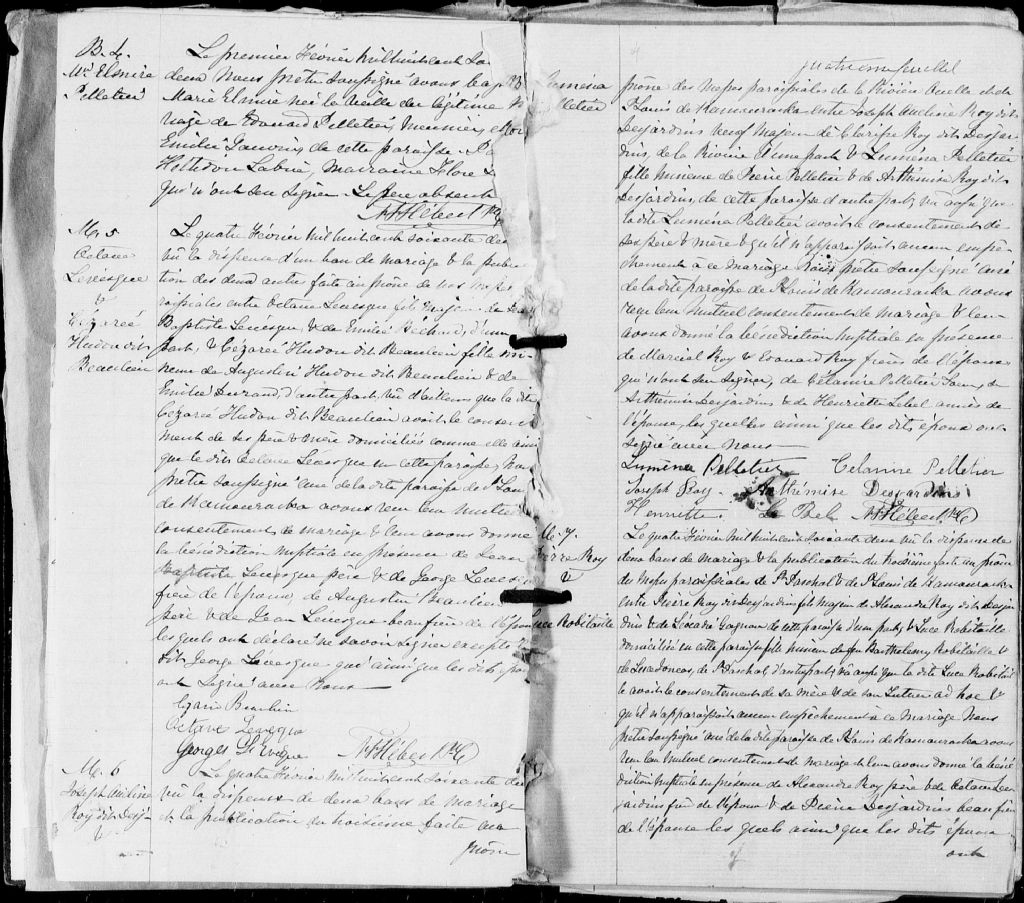 B. 4.
Me Elmire
Pelletier
Le premier Février mil huit cent soi
deux Nous prêtre soussigné avons bap
Marie Elmire née la veille du légitime
riage de Edouard Pelletier, meunier, &
Emilie Lauzon de cette paroisse. Pa
Hettidon Labrie, Marraine Flore
qui n'ont su signer. Le père absent
N. Hébert Ptr
M. 5
Octave
Levesque
&
Césarée
Hudon dit
Beaulieu
Le quatre Février mil huit cent soixante deux
vu la dispense d'un ban de mariage & la publica
tion des deux autres faite au prône de nos messes
roissiales entre Octave Levesque fils majeur de Jean
Baptiste Levesque, & de Emilie Bechard, d'une
part, & Césarée Hudon dit Beaulieu fille mi
neure de Augustin Hudon dit Beaulieu & de
Emilie Durand, d'autre part, Vu d'ailleurs que la dite
Cézarée Hudon dit Beaulieu avait le consen
tement de ses père & mère domiciliés comme elle ainsi
que le dit Octave Levesque en cette paroisse, Nous
prêtre soussigné curé de la dite paroisse de St Louis
de Kamouraska avons reçu leur mutuel
consentement de mariage & leur avons donné
la bénédiction nuptiale en présence de Jean
Baptiste Levesque père & de George Levesque
frère de l'époux, de Augustin Beaulieu
père & de Jean Levesque beaufrère de l'épouse
lesquels ont déclaré ne savoir signer excepté le
dit George Levesque qui ainsi que les dits époux
ont signé avec Nous
Cezarie Beaulieu
Octave Levesque
Georges Lévesque
N. Hébert Ptr
M. 6
Joseph
Roy dit Desj
&
Le quatre Février mil huit cent soixante deux
vu la dispense de deux bans de mariage
et la publication du troisième faite au
prône
Luména
Pelletier
quatrième feuillet
prône des messes paroissiales de la Rivière Ouelle et de
St Louis de Kamouraska entre Joseph Roy dit
Desjardins veuf majeur de Clarisse Roy dit Desjar
dins, de la Rivière d'une part & Luména Pelletier
fille mineure de Pierre Pelletier & de Arthémise Roy dit
Desjardins, de cette paroisse d'autre part, vu aussi que
la dite Luména Pelletier avait le consentement de
ses père & mère & qu'il n'apparaissait aucun empê
chement à ce mariage Nous prêtre soussigné curé
de la dite paroisse de St Louis de Kamouraska avons
reçu leur mutuel consentement de mariage & leur
avons donné la bénédiction nuptiale en présence
de Marcial Roy & Edouard Roy frères de l'époux
qui n'ont su signer, de Célanire Pelletier soeur, de
Arthémise Desjardins & de Henriette Lebel amies de
l'épouse, les quelles ainsi que les dits époux ont
signé avec nous
Luména Pelletier Celanire Pelletier
Joseph Roy. Arthémise Desjardins
Henriette Le Bel N. Hébert Ptr
M. 7.
Pierre Roy
&
Luce Robitaille
Le quatre Février mil huit cent soixante deux vu la dispense de
deux bans de mariage & la publication du troisième faite au prône
des messes paroissiales de St Paschal & de St Louis de Kamouraska
entre Pierre Roy dit Desjardins fils majeur de Alexandre Roy dit Desjar
dins & de Léocadie Gagnon de cette paroisse d'une part, & Luce Robitaille
domiciliée en cette paroisse fille mineure de feu Barthelemy Robitaille &
de Luce Joncas, de St Paschal, d'autre part, vu aussi que la dite Luce Robitail
le avait le consentement de sa mère & de son tuteur ad hoc &
qu'il n'apparaissait aucun empêchement à ce mariage Nous
prêtre soussigné curé de la dite paroisse de St Louis de Kamouraska avons
reçu leur mutuel consentement de mariage & leur avons donné la béné
diction nuptiale en présence de Alexandre Roy père & de Octave Des
jardins frère de l'époux & de Pierre Desjardins beaufrère
de l'épouse les quels ainsi que les dits époux
ont